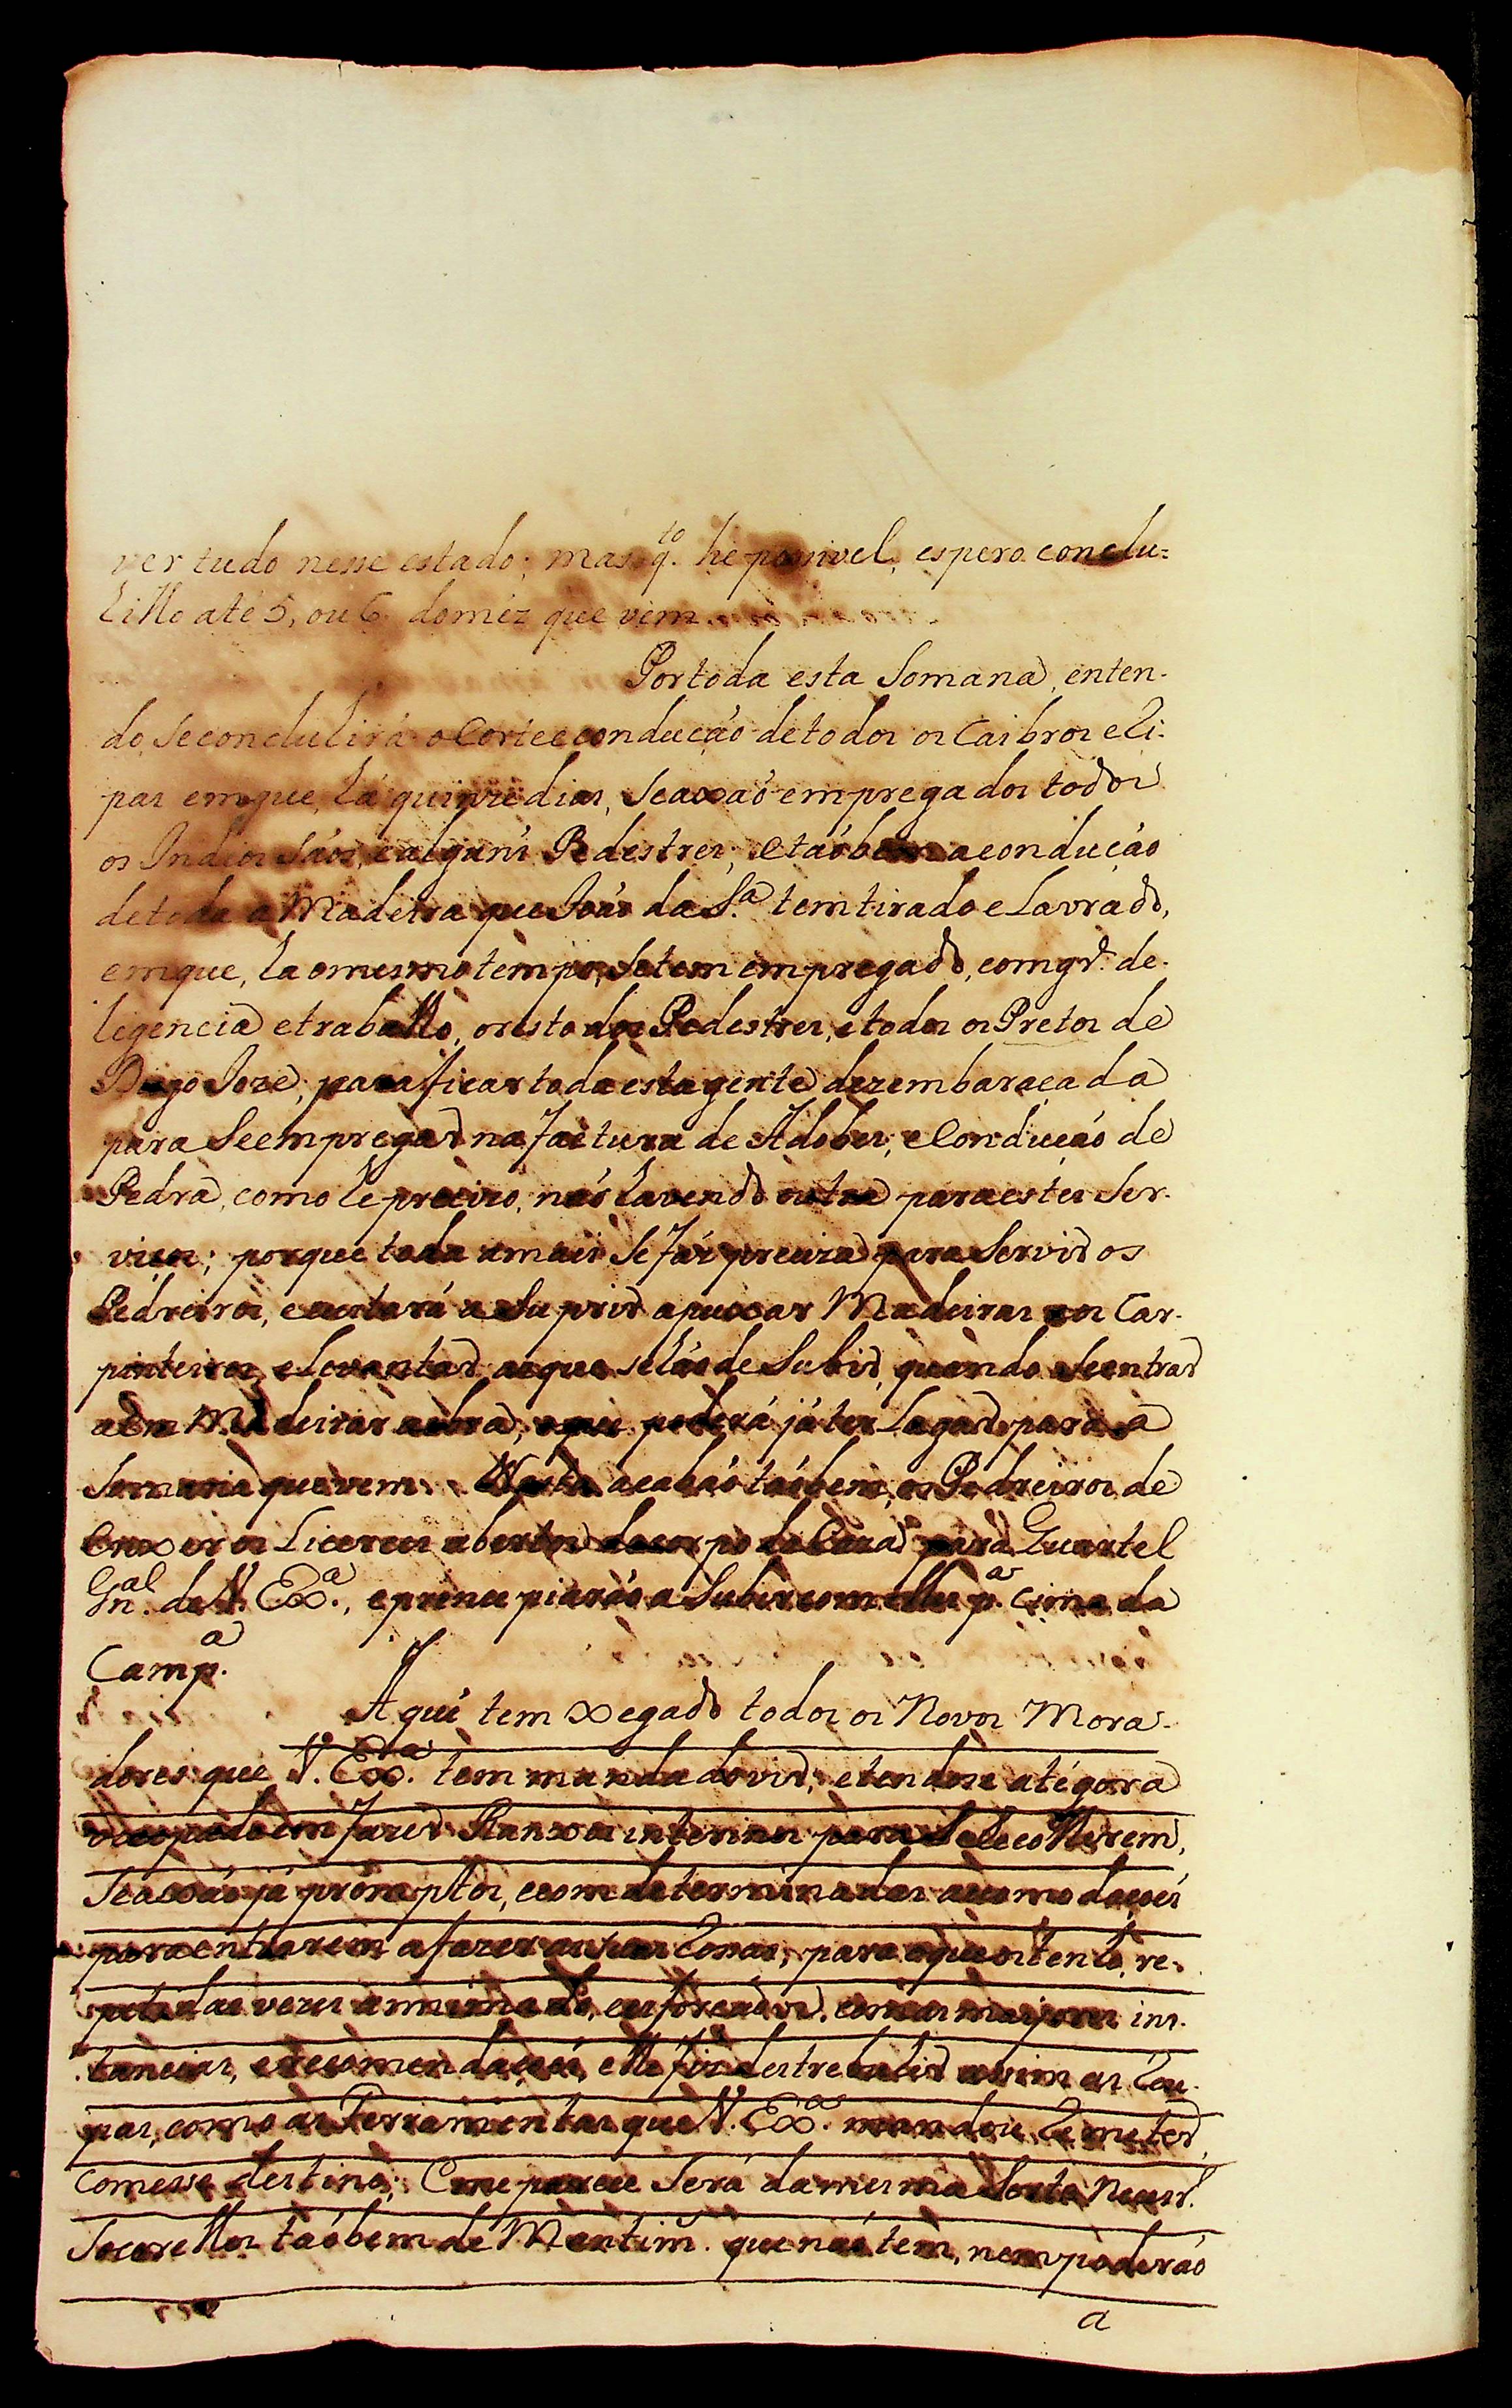 ver tudo nesse estado; mas q.to he possivel, espero conclu=
hillo até 5, ou 6 domêz que vem.
Portoda esta Somana, enten-
do, Seconcluhirá o Corte econducção detodos os Caibros e Ri-
pas emque, há quinze dias, Seaxaõ empregados todos
os Indios Sáos, ealguñs Pedestres; etaõbem aconducção
detoda a Madeira que Joaõ da S.a temtirado eLavrado,
emque, ha omesmo tempo, Setem empregado, comgr.de de-
ligencia etraballo, oresto dos Pedestres, etodos os Pretos de
Diogo Joze; para ficar toda esta gente dezembaraçada
para Seempregar na factura de Adobes, eConducção de
Pedra, como he precizo, naõ havendo outra paraestes Ser-
viços; porque toda amais Sefáz preciza para Servir os
Pedreiros, e a Suprir apuxar Madeiras aos Car-
pinteiros, eLevantar asque sehaõde Subir, quando Seentrar
a em Madeirar aobra; oque poderá já ter Lugar para a
Somana quevem. Nesta acabaõ taõbem, os Pedreiros de
Enxer os Licerces abertos docorpo da Caza para Quartel
Gn.al de V. Ex.a, eprincipiaráõ a Subir comelles p.a Cima da
Camp.a
Aqui tem xegado todos os Novos Mora-
dores que V. Ex.a tem mandado vir; etendose atégora
occupado em fazer Ranxos interinos para Serecollerem,
Seaxaõ já promptos, ecom determinadas acomodaçoẽs
para entrarem afazer assuas Rossas; para oque ostenho, re-
petidas vezes annimado, eesforçado, com as mayores ins-
tancias, erecomendaçoẽs, elles fiz destrebuhir assim as Rou-
pas, como as Ferramentas que V. Ex.a mandou Remeter,
comesse destino; Eme parece Será damesma Sorte Necess.o
Socorrellos taõbem de Mantim. que naõ tem, nem poderáõ
a